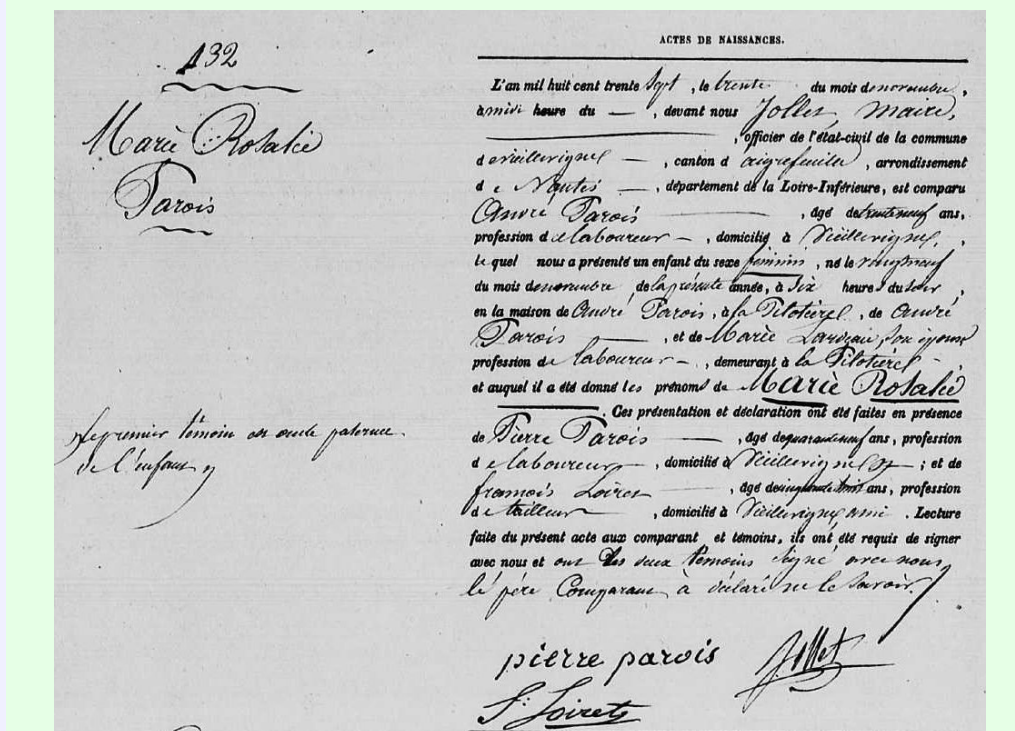 ACTES DE NAISSANCES.
132
Marie Rosalie
Parois
L'an mil huit cent trente sept, le trente du mois de novembre,
à midi heure du —, devant nous Jollet, maire,
, officier de l'état-civil de la commune
de vieillevigne —, canton d'aigrefeuille, arrondissement
de Nantes —, département de la Loire-Inférieure, est comparu
André Parois, âgé de trente neuf ans,
profession de laboureur —, domicilié à Vieillevigne,
le quel nous a présenté un enfant du sexe féminin, né le vingt neuf
du mois de novembre de la présente année, à six heures du soir,
en la maison de André Parois, à la Pilotière, de André
Parois — et de Marie son épouse
profession de laboureur —, demeurant à la Pilotière
et auquel il a été donné les prénoms de Marie Rosalie
. Ces présentation et déclaration ont été faites en présence
de Pierre Parois —, âgé de quarante neuf ans, profession
de laboureur —, domicilié à Vieillevigne — ; et de
françois Loiret —, âgé de cinquante trois ans, profession
de tailleur —, domicilié à Vieillevigne ami. Lecture
faite du présent acte aux comparant et témoins, ils ont été requis de signer
avec nous et ont les deux témoins signé avec nous,
le père Comparant à déclaré ne le savoir.
le premier témoin est oncle paternel
de l'enfant
pierre parois Jollet
Loiret